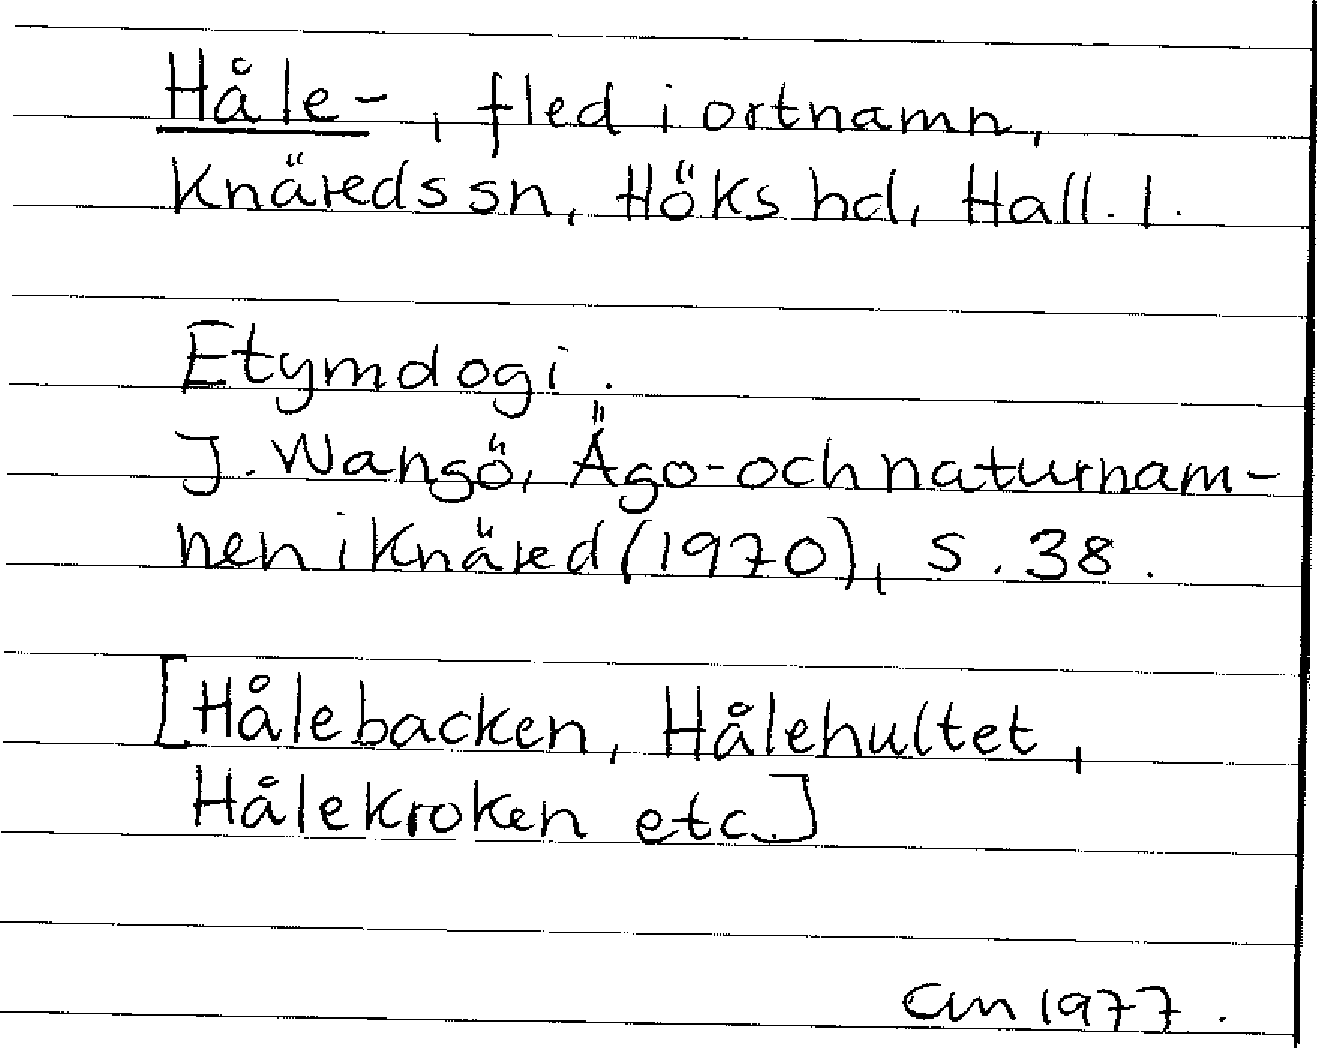 Håle-, fled i ortnamn,
Knäreds sn, Höks hd, Hall. l.
Etymologi.
J. Wangö, Ägo- och naturnam-
nen i Knäred (1970), s. 38.
[Hålebacken, Hålehultet,
Hålekroken etc.]
CLM 1977.